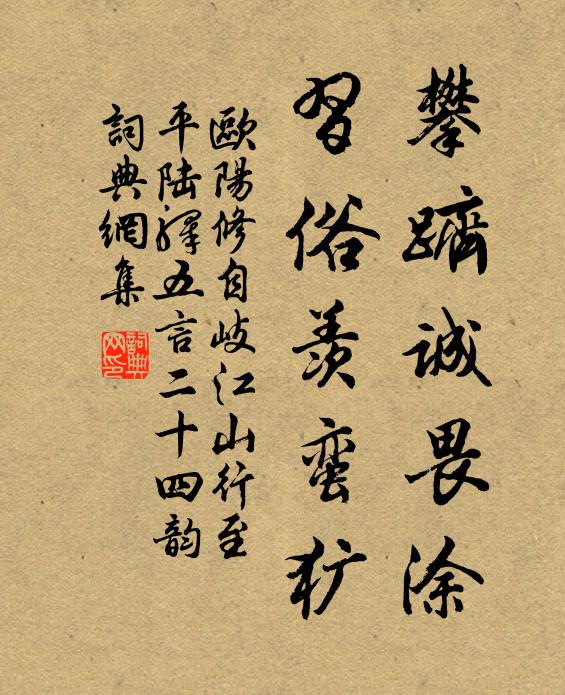 攀躋誠畏涂
習俗羨蛮犷
歐陽修自岐江山行至
平陆驿五言二十四韵
詞典網集
詞典网印